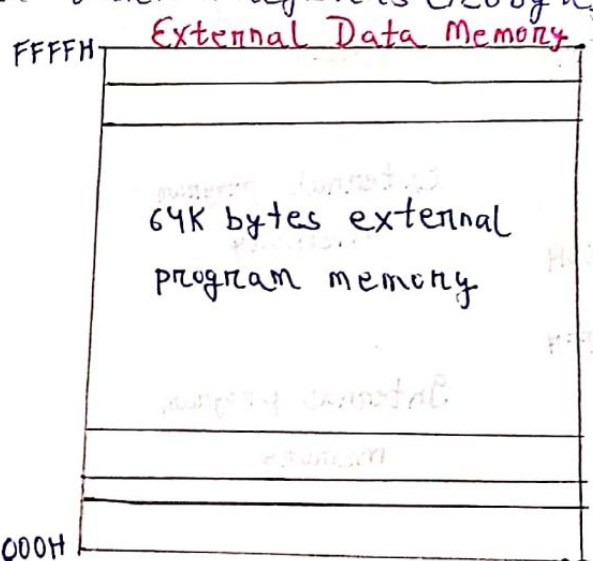 External Data Memory
FFFFH
64K bytes external
program memory
000H